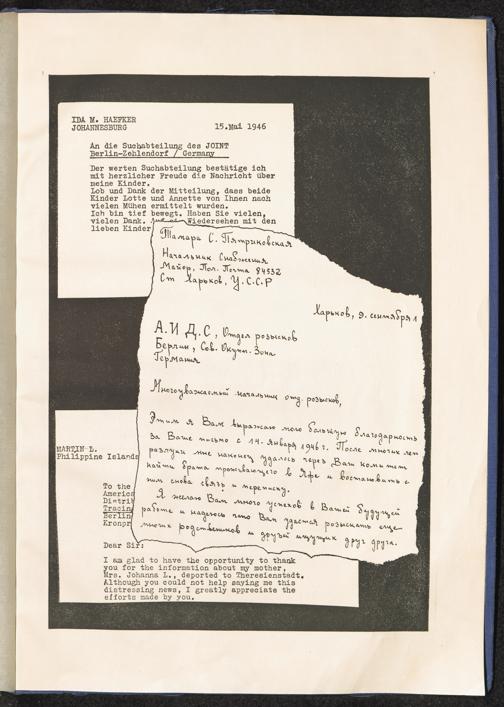 IDA M. HAEFKER
JOHANNESBURG
15.Mai 1946
An die Suchabteilung des JOINT
Berlin-Zehlendorf / Germany
Der werten Suchabteilung bestätige ich
mit herzlicher Freude die Nachricht über
meine Kinder.
Lob und Dank der Mitteilung, dass beide
Kinder Lotte und Annette von Ihnen den
vielen Mühen ermittelt wurden.
Ich bin tief bewegt. Haben Sie vielen,
vielen Dank. Wiedersehen mit den
lieben Kinder
Тамара С. Пятриковская
Начальник Снабжения
Майор, Пол. Почта 84532
Ст Харьков, У.С.С.Р
Харьков, 9. сентября 1
А.И Д.С, Отдел розысков
Берлин, Сов. Окупп. Зона
Германия
Многоуважаемый начальник отд. розысков,
Этим я Вам выражаю мою большую благодарность
за Ваше письмо с 14. января 1946 г. После многих лет
разлуки мне наконец удалось через Ваш комитет
найти брата проживающего в Яфе и востановить с
ним снова связь и переписку.
Я желаю Вам много успехов в Вашей будущей
работе и надеюсь что Вам удастся розыскать еще
многих родственников и друзей ищущих друг друга.
MARTIN L.
Philippine Islands
To the
Americ
Distri
Tracin
Berlin
Kronpr
Dear Sir:
I am glad to have the opportunity to thank
you for the information about my mother,
Mrs. Johanna L., deported to Theresienstadt.
Although you could not help saying me this
distressing news, I greatly appreciate the
efforts made by you.